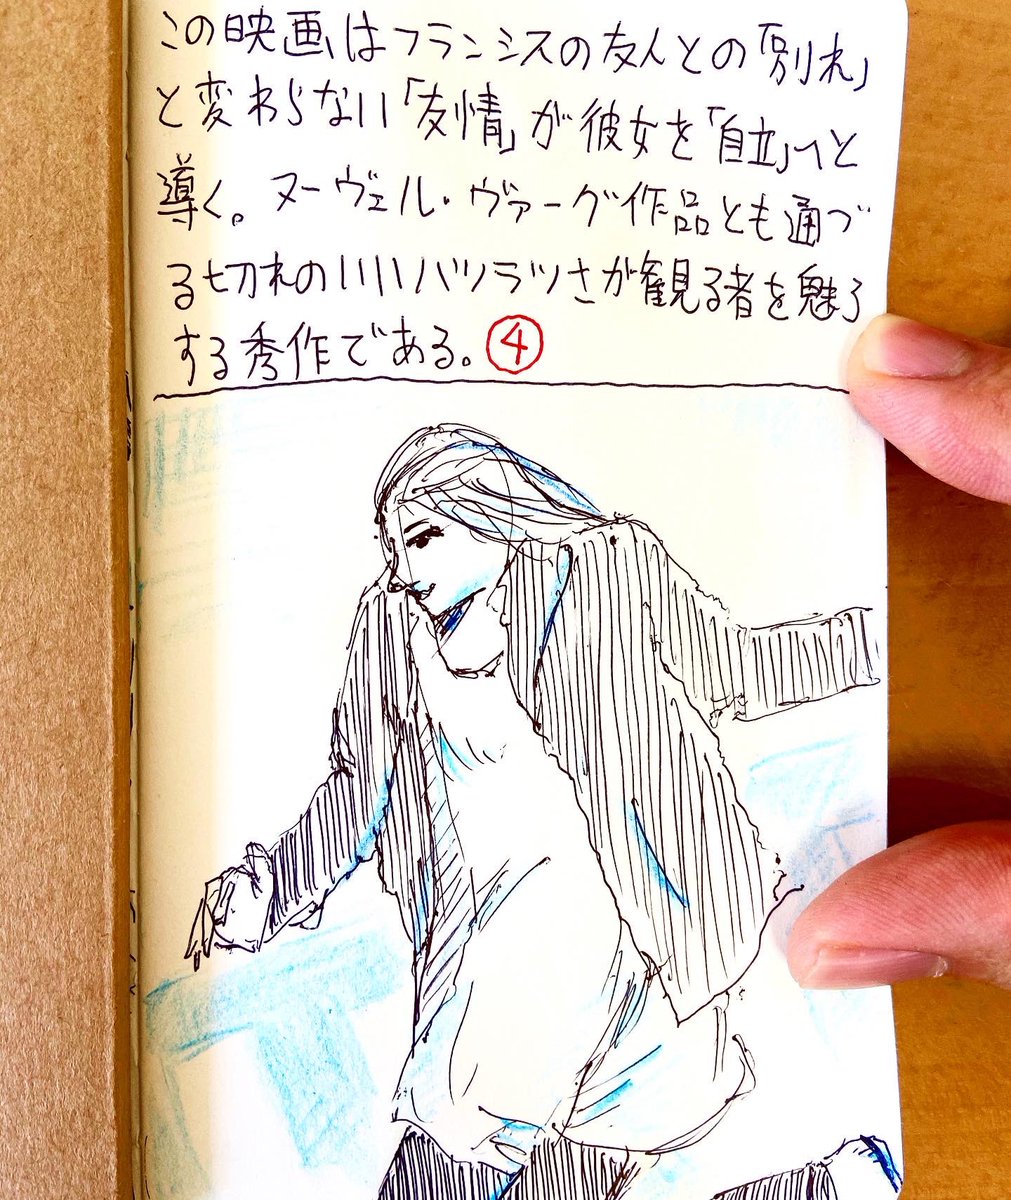 この映画はフランシスの友人との「別れ」
と変わらない「友情」が彼女を「自立」へと
導く。ヌーヴェル・ヴァーグ作品とも通づ
る切れのいいハツラツさが観る者を魅了
する秀作である。④